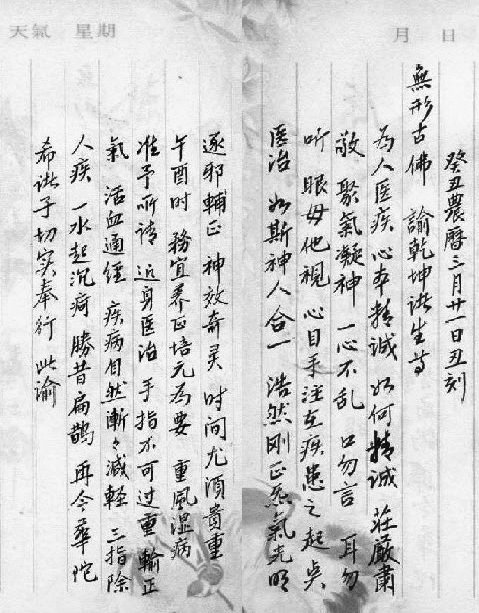 天氣 星期 月 日
癸丑農曆三月廿一日丑刻
無形古佛 諭乾坤諸生等
為人医疾心本精誠 如何精誠 莊嚴肅
敬 聚氣凝神 一心不乱 口勿言 耳勿
听 眼毋他視 心目手注在疾患之起点
医治 如斯神人合一 浩然刚正炁氣光明
逐邪輔正 神效奇灵 时间尤须貴重
午酉时 務宜养正培元为要 重風湿病
准予所请 近身医治 手指不可过重 輸正
氣 活血通經 疾病自然漸々減輕 三指除
人疾 一水起沉疴 勝昔扁鵲 再今華陀
希諸子切实奉行 此諭